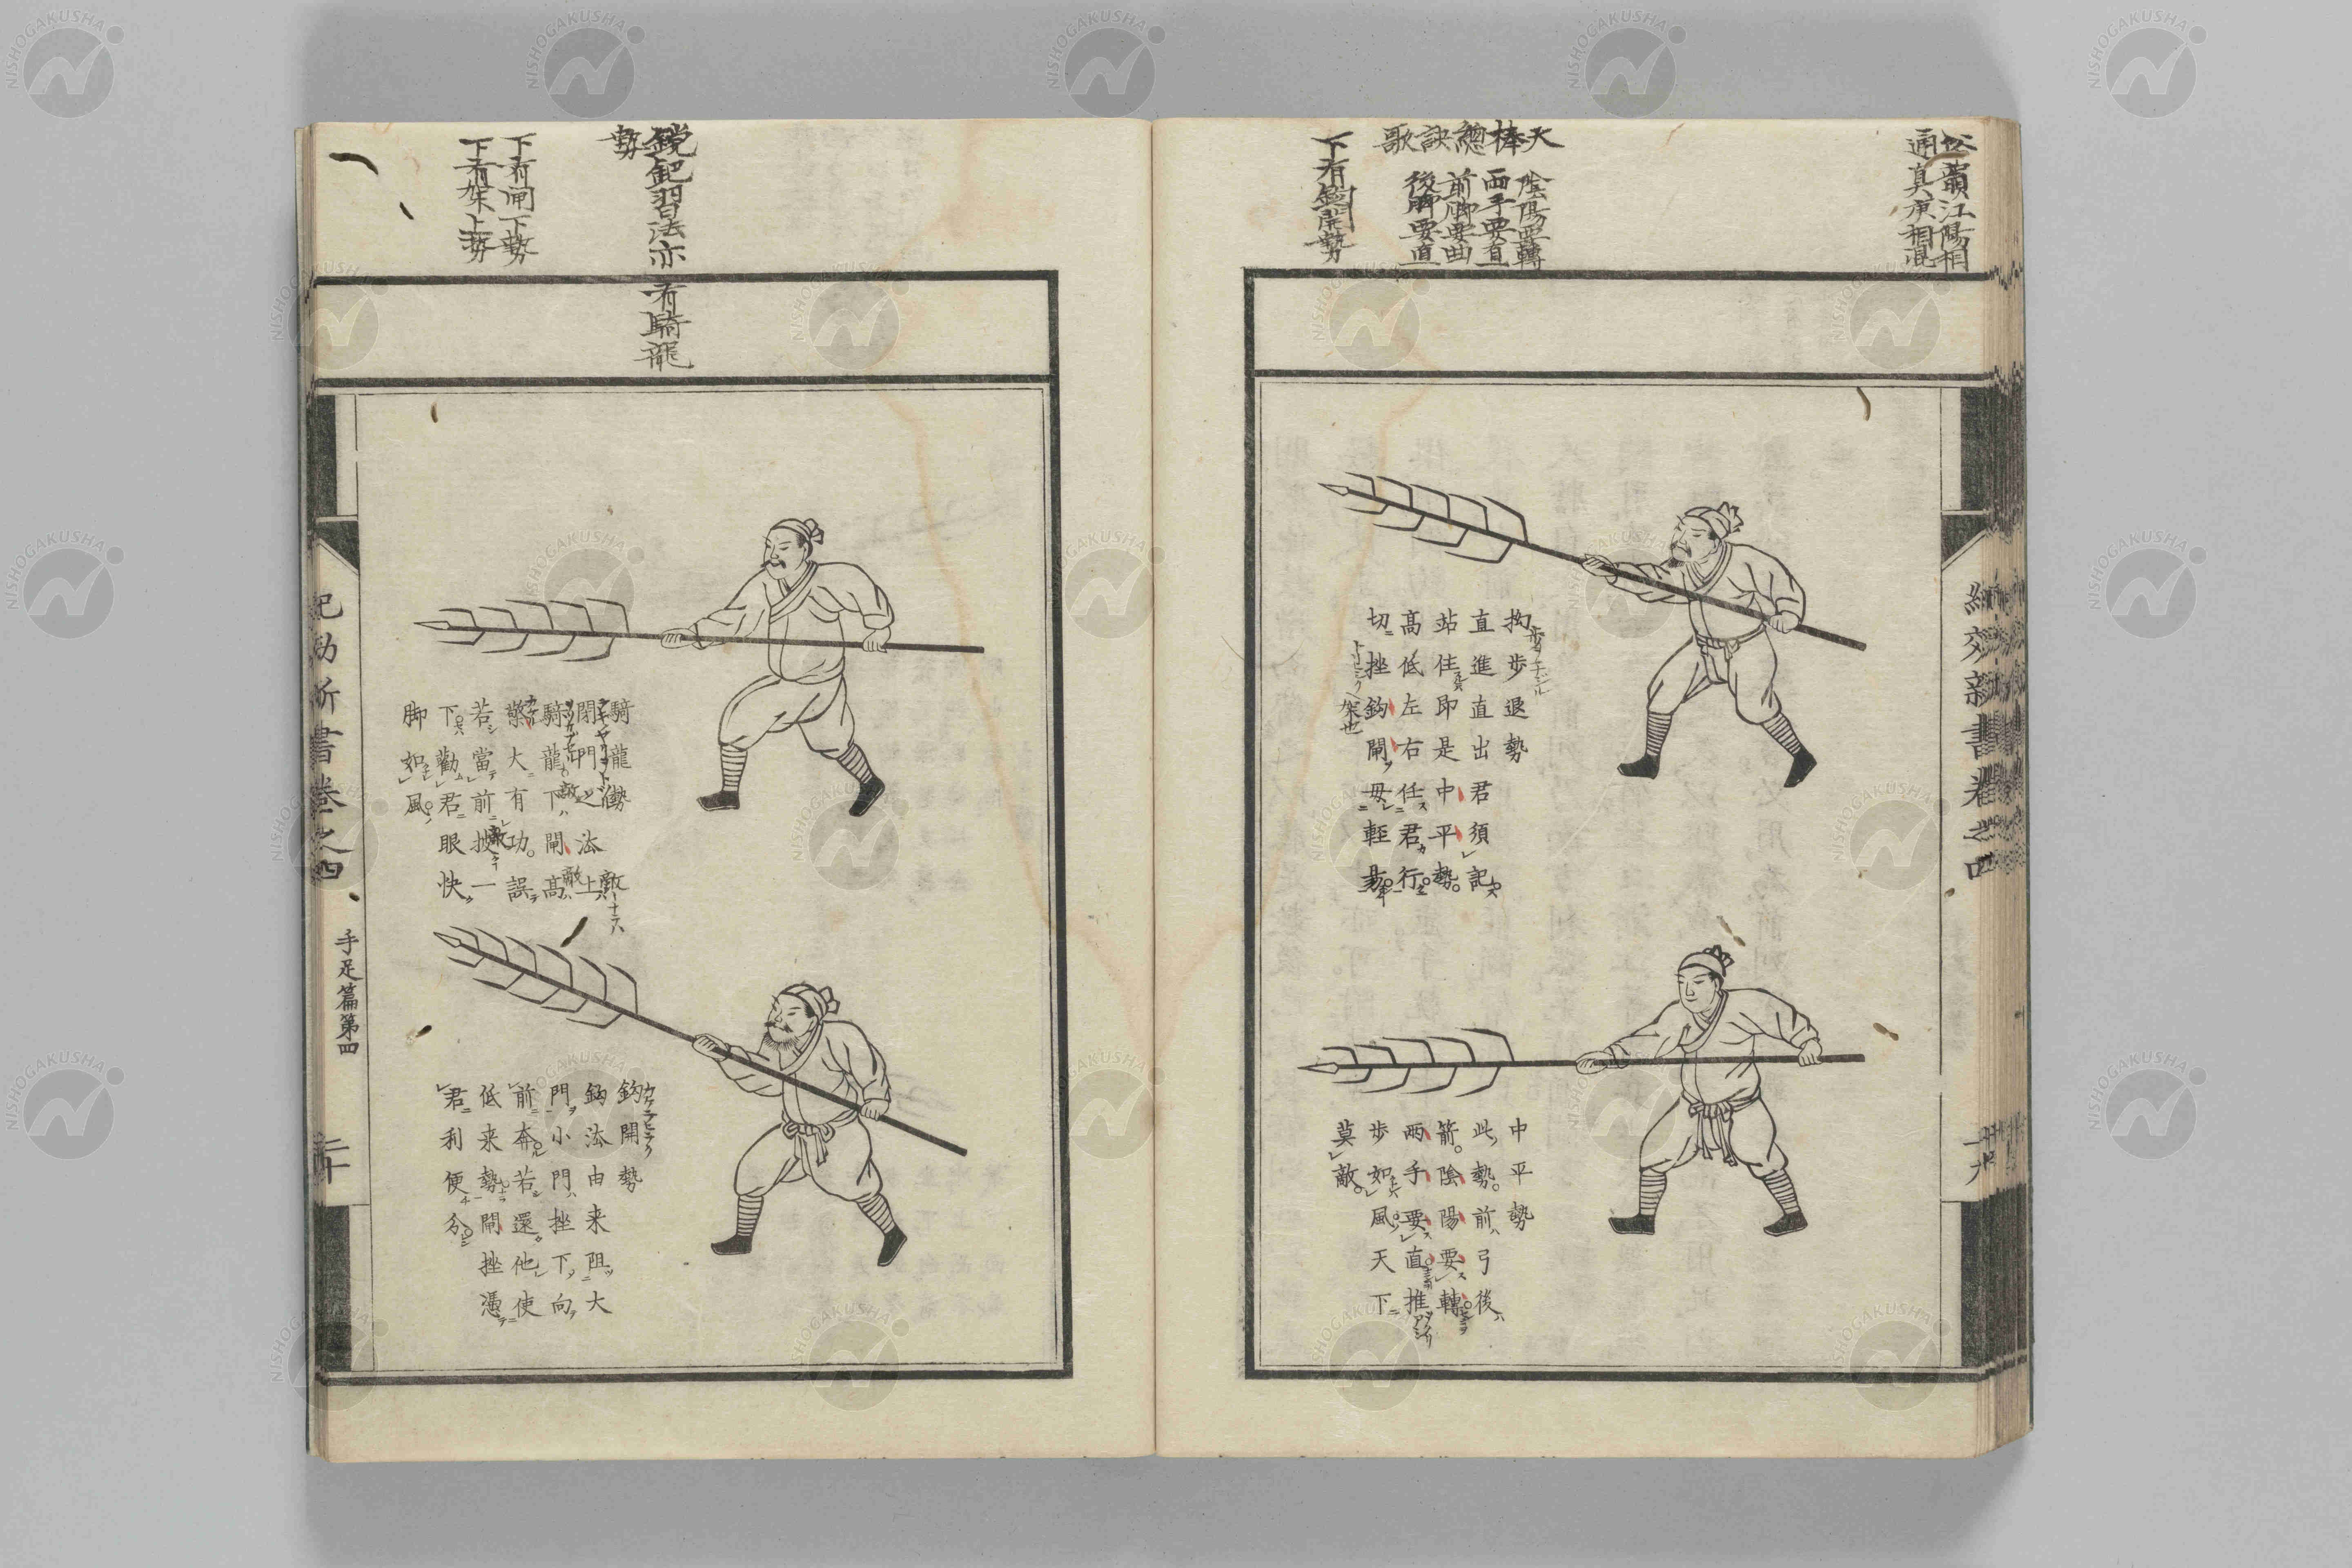 通真庚相混
天棒總訣歌
陰陽要轉
両手要直
前脚要曲
後脚要直
下有鉤開勢
紀效新書卷之四
十九
拗步退勢
直進直出君須記
站住即是中平勢
高低左右任君行
切挫鈎閘毋輕易
架也
中平勢
此勢前弓後
箭陰陽要轉
兩手要直推
步如風天下
莫敵
鏜鈀習法亦有騎龍
勢
下有閘下勢
下有架上勢
騎龍勢
閉門之法上
騎龍下閘高
檠大有功誤
若當前披一
下勸君眼快
脚如風
鈎開勢
鈎法由来阻大
門小門挫下向
前奔若還他使
低来勢閘挫憑
君利便分
紀效新書卷之四
手足篇第四
二十
NISHOGAKUSHA